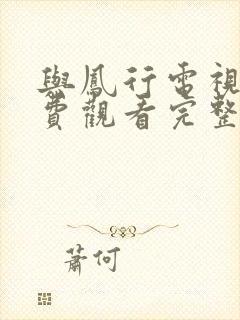 與鳳行電視
費觀看完整
蕭何